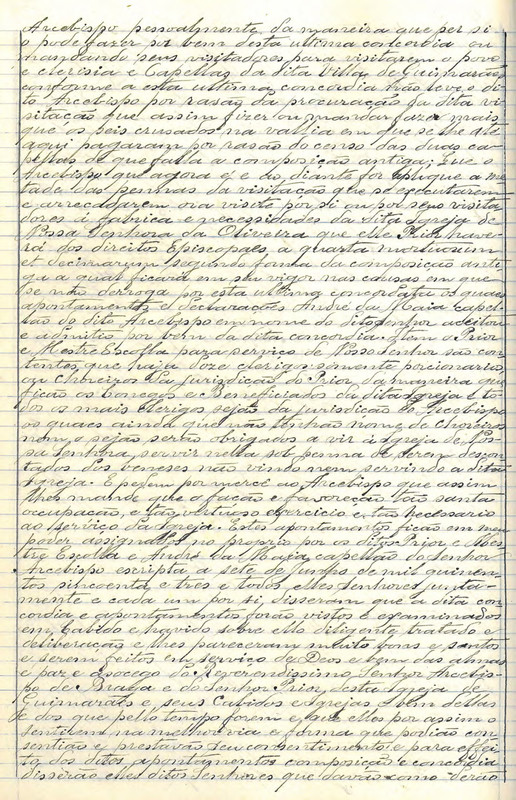 Arcebispo pessoalmente da maneira que per si
o pode fazer por bem desta ultima concordia ou
mandando seus visitadores para visitarem o povo
e clerisia e Capellas da dita Villa de Guimarães,
conforme a esta ultima concordia não leve o di-
to Arcebispo por rasão da procuração da dita vi-
sitação que assim fizer ou mandar fazer mais
que os seis crusados na valia em que se lhe até
aqui pagaram por rasão do censo das duas ca-
pellas de que falla a composição antiga; que o
Arcebispo que agora é e ao diante for aplique a me-
tade das pennas da visitação que se executarem
e arrecadarem ora visite por si ou por seus visita-
dores á fabrica e necessidades da dita Igreja de
Nossa Senhora da Oliveira que elle Prior have-
rá dos direitos Episcopaes a quarta mortuorum
et decimarum segundo forma da composição anti-
ga a qual ficará em seu vigor nas causas em que
se não derroga por esta ultima concordata os quaes
apontamentos e declarações André da Maia capel-
lão do dito Arcebispo em nome do dito senhor aceitou
e admitiu por bem da dita concordia. Item o Prior
e Mestre Escolla para serviço de Nosso Senhor são con-
tentes que haja doze clerigos somente porcionarios
ou Choreiros da jurisdicção do Prior da maneira que
ficão os Conegos e Beneficiados da dita Igreja e to-
dos os mais clerigos sejão da jurisdição do Arcebispo
os quaes ainda que não tenhão nome de Choreiros
nem o sejão serão obrigados a vir á Igreja de Nos-
sa Senhora, servir nella sob penna de serem descon-
tados dos beneses não vindo nem servindo a dita
Igreja. E pedem por mercê ao Arcebispo que assim
lhes mande que o fação e favoreção tão santa
occupação, e tão virtuoso exercicio e tão necessario
ao serviço da Igreja. Estes apontamentos ficão em meu
poder assignados no proprio por os ditos Prior e Mes-
tre Escolla e André da Maia, capellão do Senhor
Arcebispo escripta a sete de junho de mil quinhen-
tos sincoenta e tres e todos elles Senhores junta-
mente e cada um por si, disseram que a dita con-
cordia e apontamentos forão vistos e examinados
em Cabido e havido sobre ello diligente tratado e
deliberação e lhes pareceram muito bons e santos
e serem feitos em serviço de Deos e bem das almas
e paz e asocego do Reverendissimo Senhor Arcebis-
po de Braga e do Senhor Prior desta Igreja de
Guimarães e seus Cabidos e Igrejas e bem dellas
e dos que pello tempo forem e que elles por assim o
sentirem na melhor via e forma que podião con-
sentião e prestavão seu consentimento e para effei-
to dos ditos apontamentos composição e concordia
disserão elles ditos Senhores que davão como derão